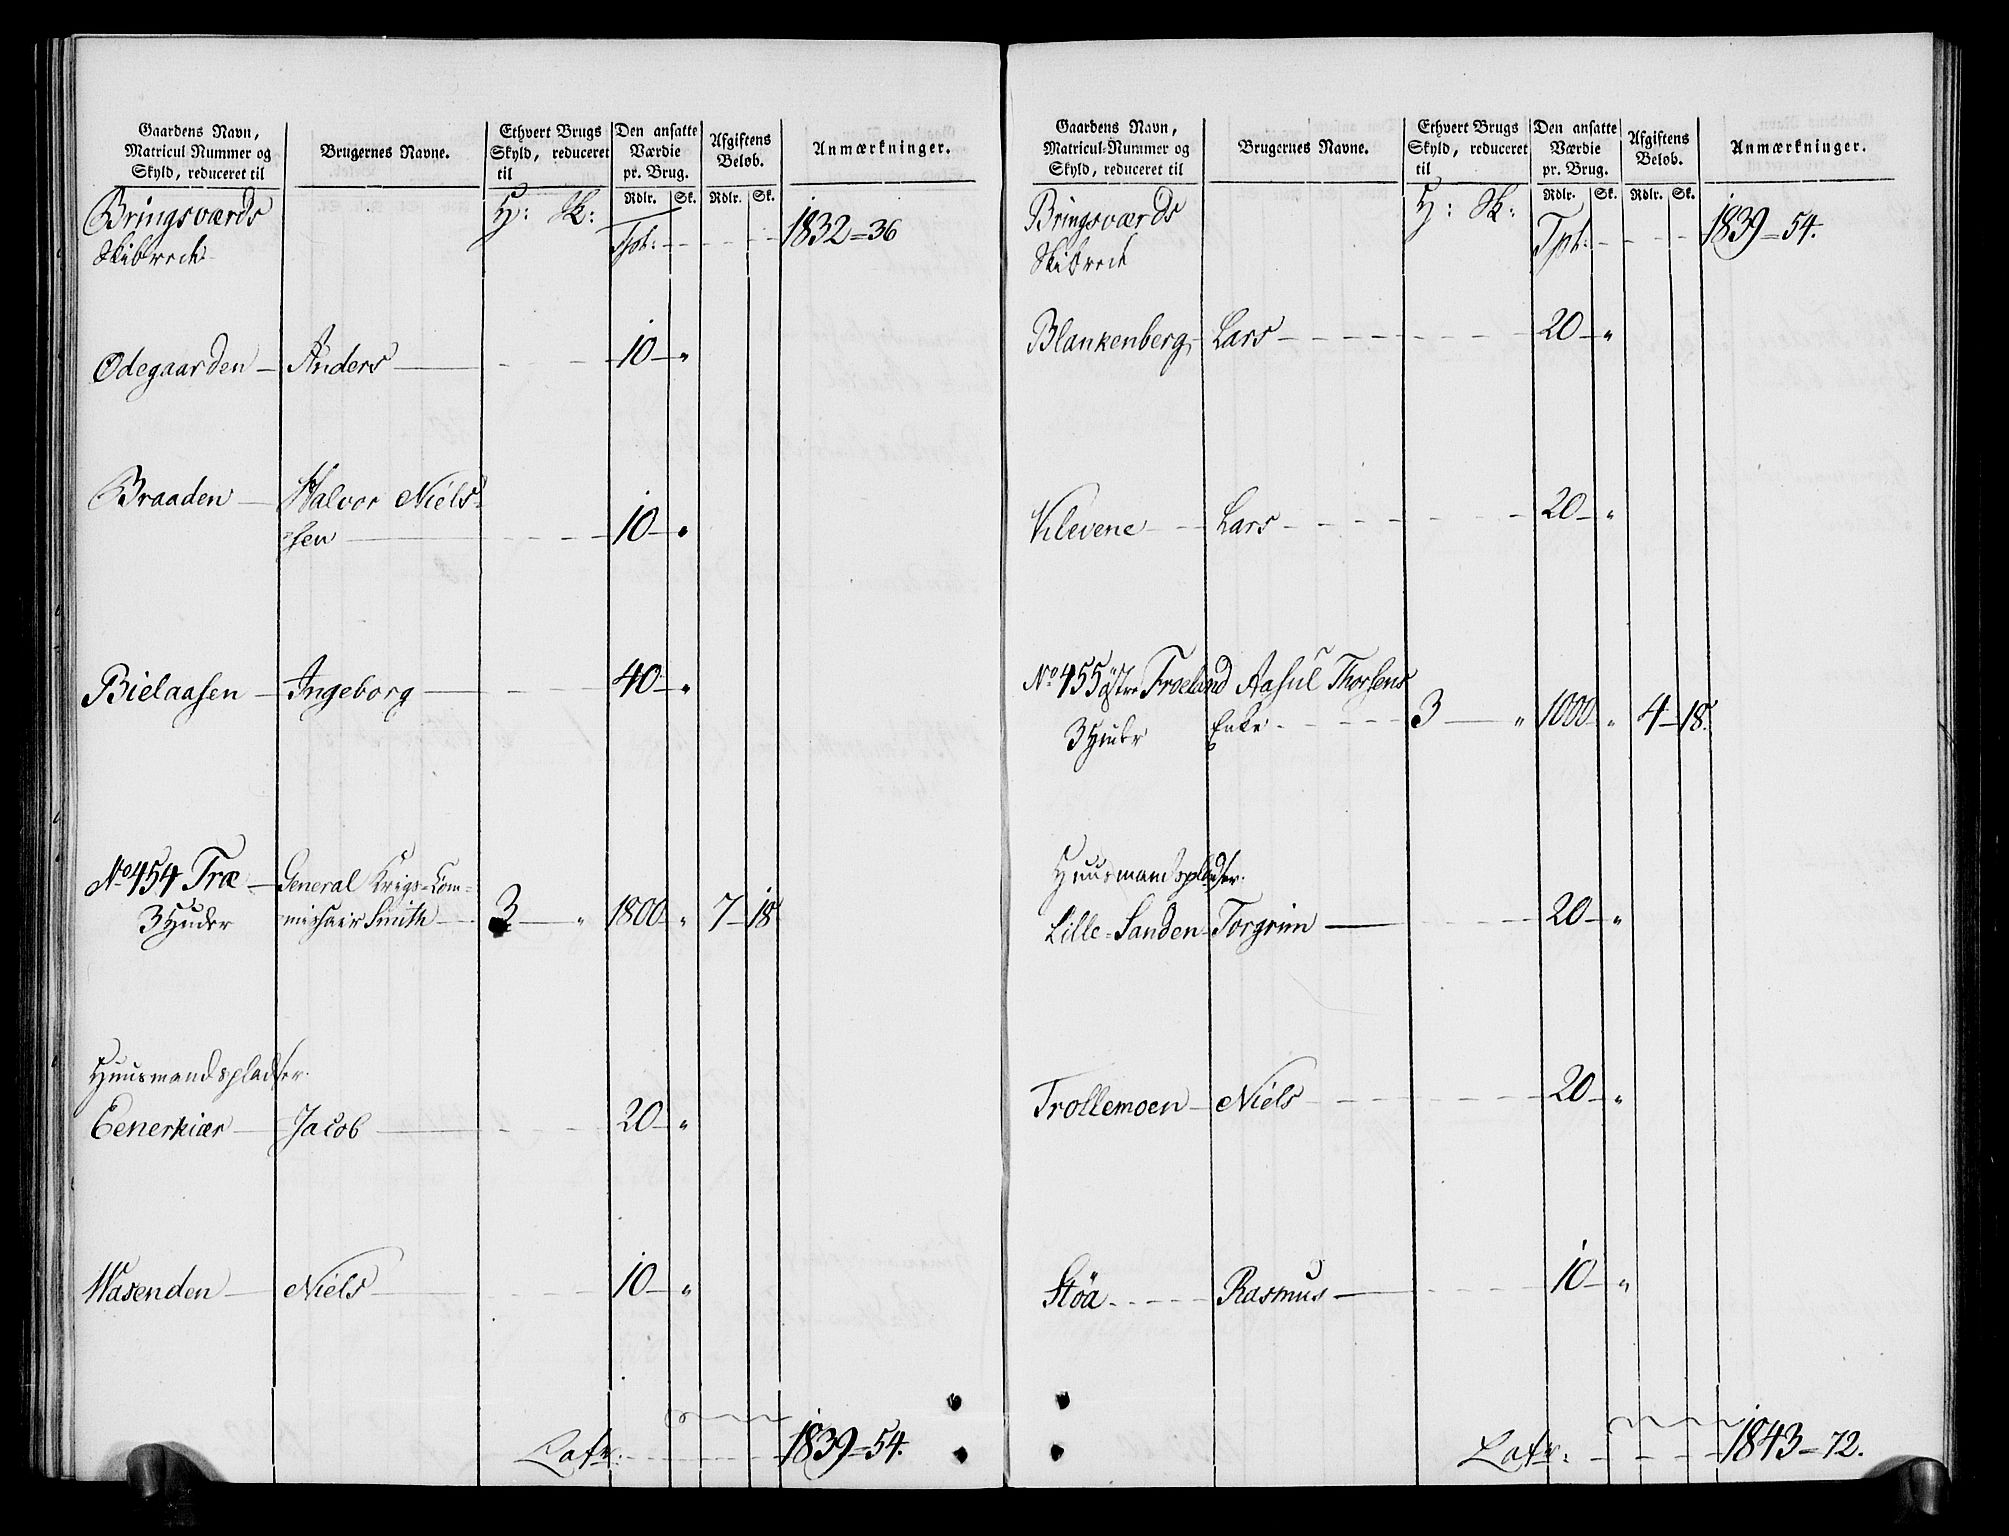 Gaardens Navn,
Matricul Nummer og
Skyld, reduceret til
Brugernes Navne.
Ethvert Brugs
Skyld, reduceret
til
Den ansatte
Værdie
pr. Brug.
Rdlr. Sk.
Afgiftens
Beløb.
Rdlr. Sk.
Anmærkninger.
Bringsværds H: Sk: Tpt: 1832=36
Skibrede
Ødegaarden — Anders — 10 — "
Braaden — Halvor Niels-
sen — 10 — "
Bielaasen — Ingeborg — 40 — "
No 454 Træ — General Krigs-Com-
3 Huder missair Smith — 3 — " 1800 — " 7 — 18
Huusmandspladser.
Eenerkiær — Jacob — 20 — "
Wasenden — Niels — 10 — "
Latr: 1839=54.
Gaardens Navn,
Matricul-Nummer og
Skyld, reduceret til
Brugernes Navne.
Ethvert Brugs
Skyld, reduceret
til
Den ansatte
Værdie
pr. Brug.
Rdlr. Sk.
Afgiftens
Beløb.
Rdlr. Sk.
Anmærkninger.
Bringsværds H: Sk: Tpt: 1839=54.
Skibrede
Blankenberg — Lars — 20 — "
Klevene — Lars — 20 — "
No 455 Østre Froeland Aasul Thorsens
3 Huder Enke — 3 — " 1000 — " 4 — 18.
Huusmandspladser.
Lille-Sanden — Torgrim — 20 — "
Trollemoen — Niels — 20 — "
Støa — Rasmus — 10 — "
Latr: 1843=72.